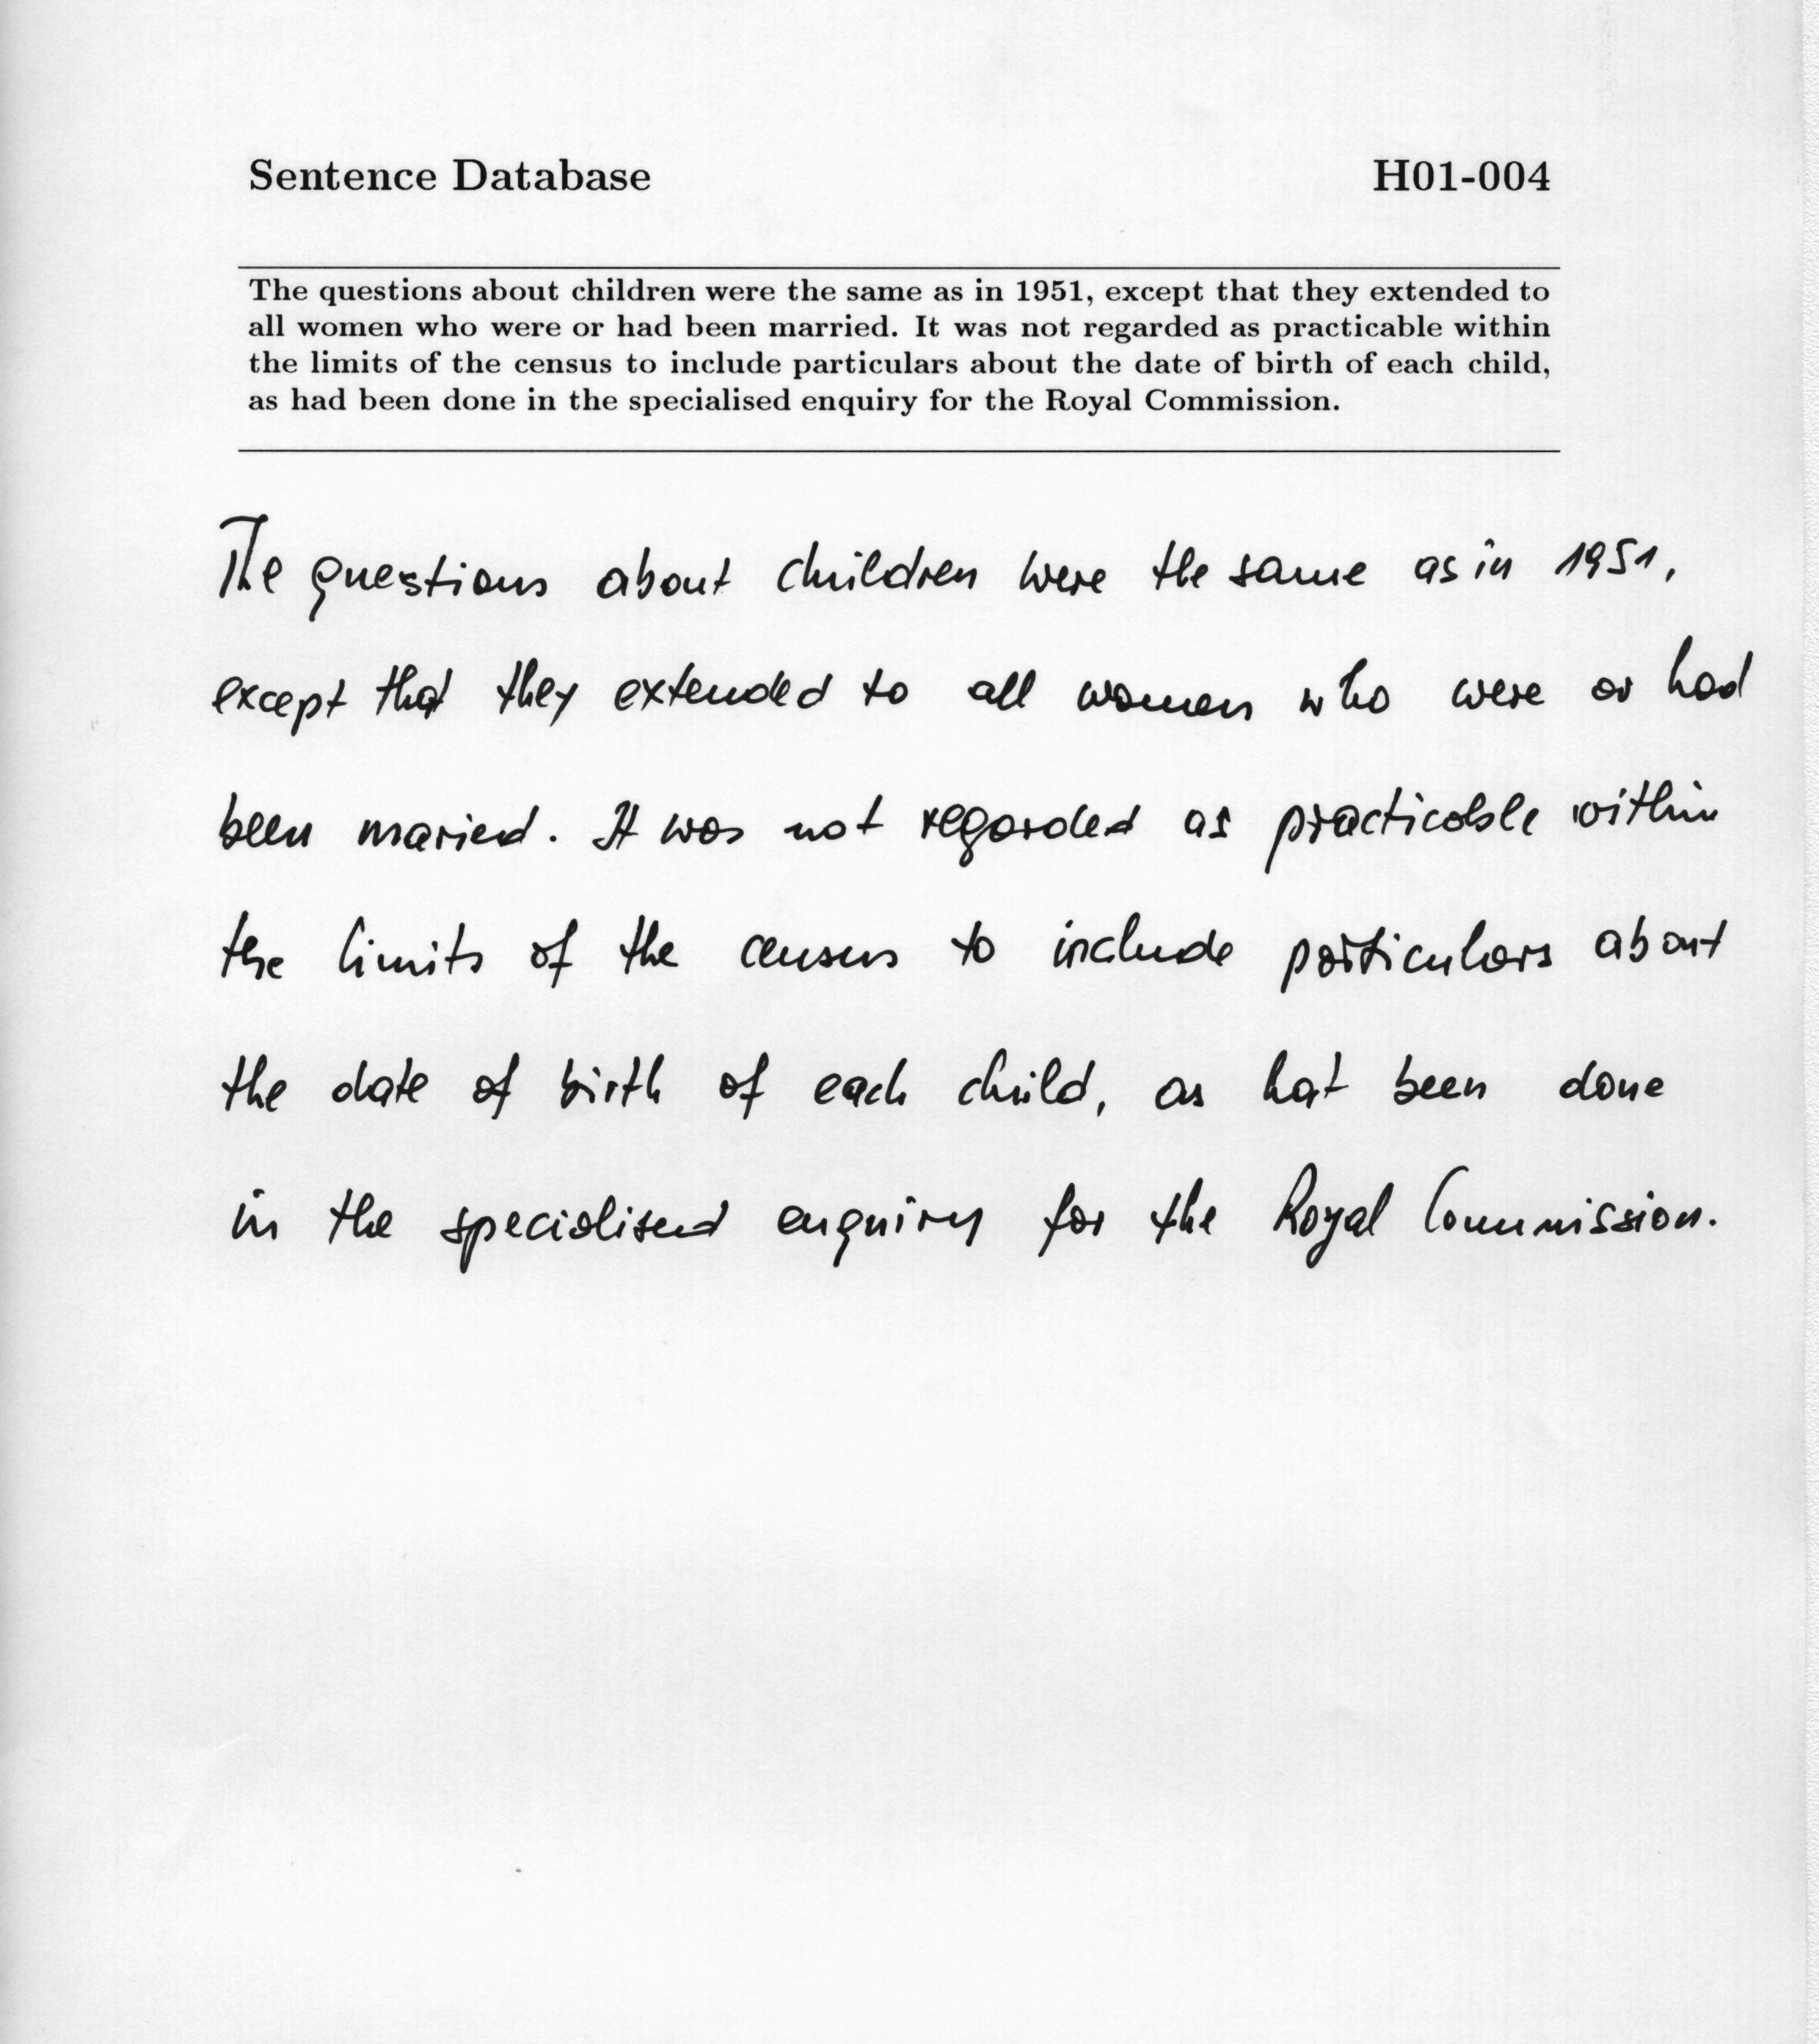 Sentence Database H01-004
The questions about children were the same as in 1951, except that they extended to
all women who were or had been married. It was not regarded as practicable within
the limits of the census to include particulars about the date of birth of each child,
as had been done in the specialised enquiry for the Royal Commission.
The questions about children were the same as in 1951,
except that they extended to all women who were or had
been maried. It was not regarded as practicable within
the limits of the census to include particulars about
the date of birth of each child, as hat been done
in the specialised enquiry for the Royal Commission.